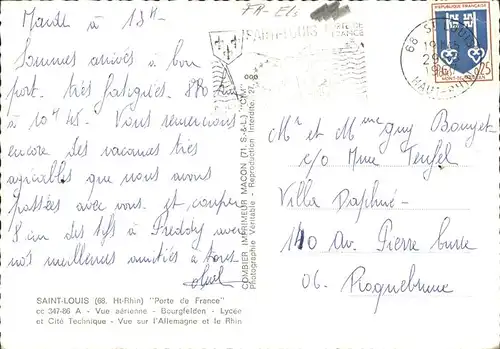 Mardi à 13H
Sommes arrivés à bon
port, très fatigués 880 km
à 10H45. Vous remercions
encore des vacances très
agréables que nous avons
passées avec vous. et
avec
nos meilleures amitiés à tous
SAINT-LOUIS (68. Ht-Rhin) "Porte de France"
cc 347-86 A - Vue aérienne - Bourgfelden - Lycée
et Cité Technique - Vue sur l'Allemagne et le Rhin
COMBIER IMPRIMEUR MACON (71. S.-&-L.) "CIM"
Photographie Véritable - Reproduction Interdite
FR-Els
SAINT-LOUIS
PORTE DE
FRANCE
68 ST LOUIS
29
HAUT-RHIN
REPUBLIQUE FRANÇAISE
0,25
MONT-DE-MARSAN
Mr et Mme Guy Bouget
c/o Mme Teufel
Villa Daphné
140 Av. Pierre
06. Roquebrune